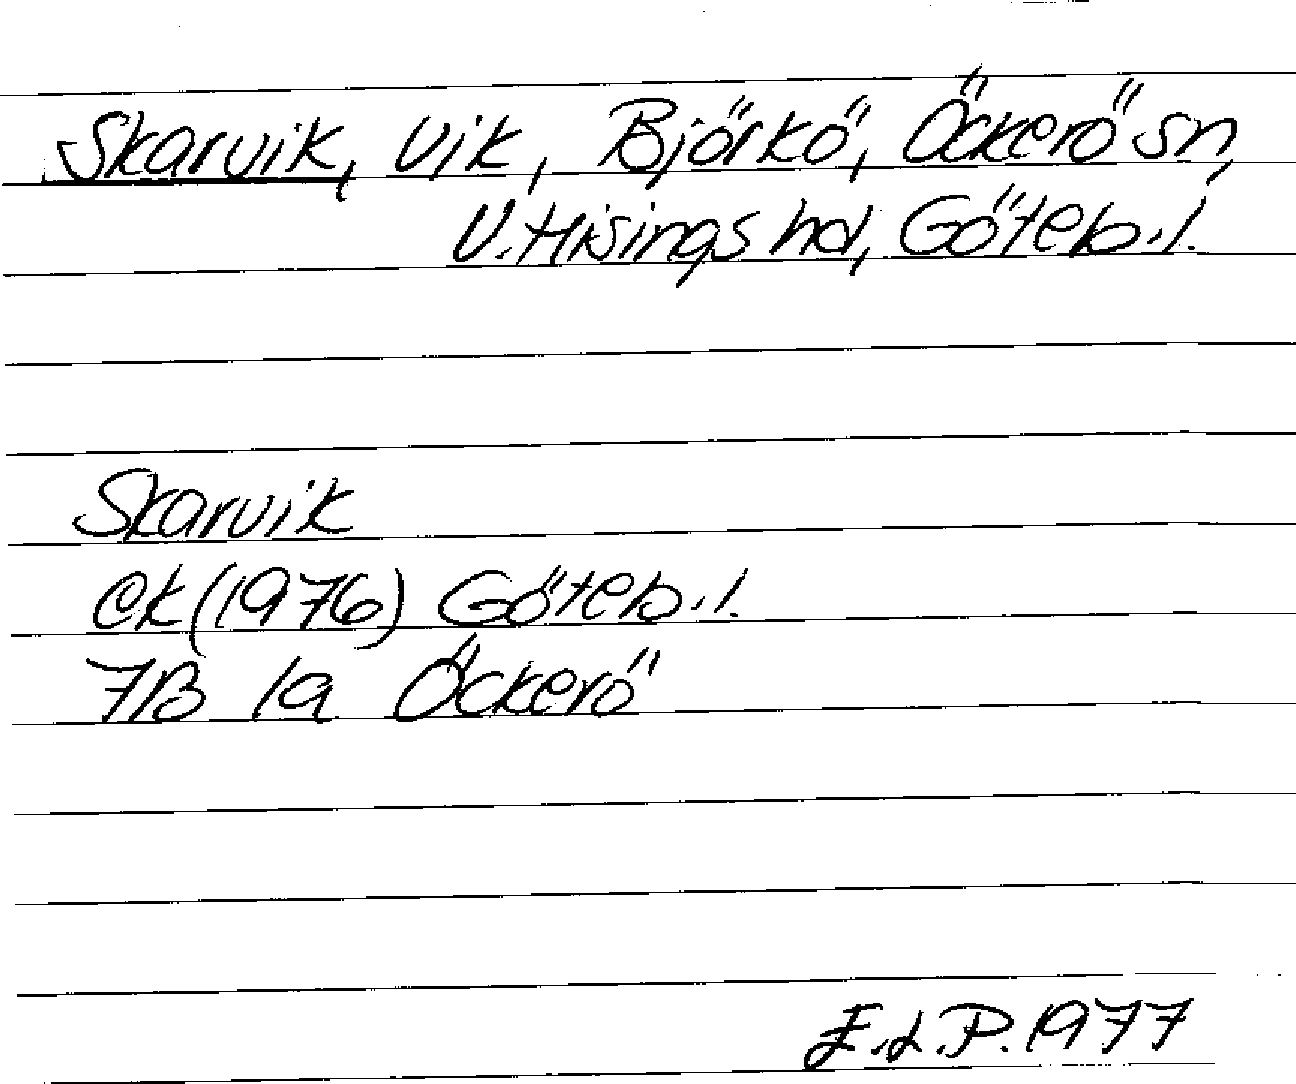 Skarvik, vik, Björkö, Öckerö sn,
V. Hisings hd, Göteb. l.
Skarvik
ek (1976) Göteb. l.
7B 1a Öckerö
E.L.P. 1977